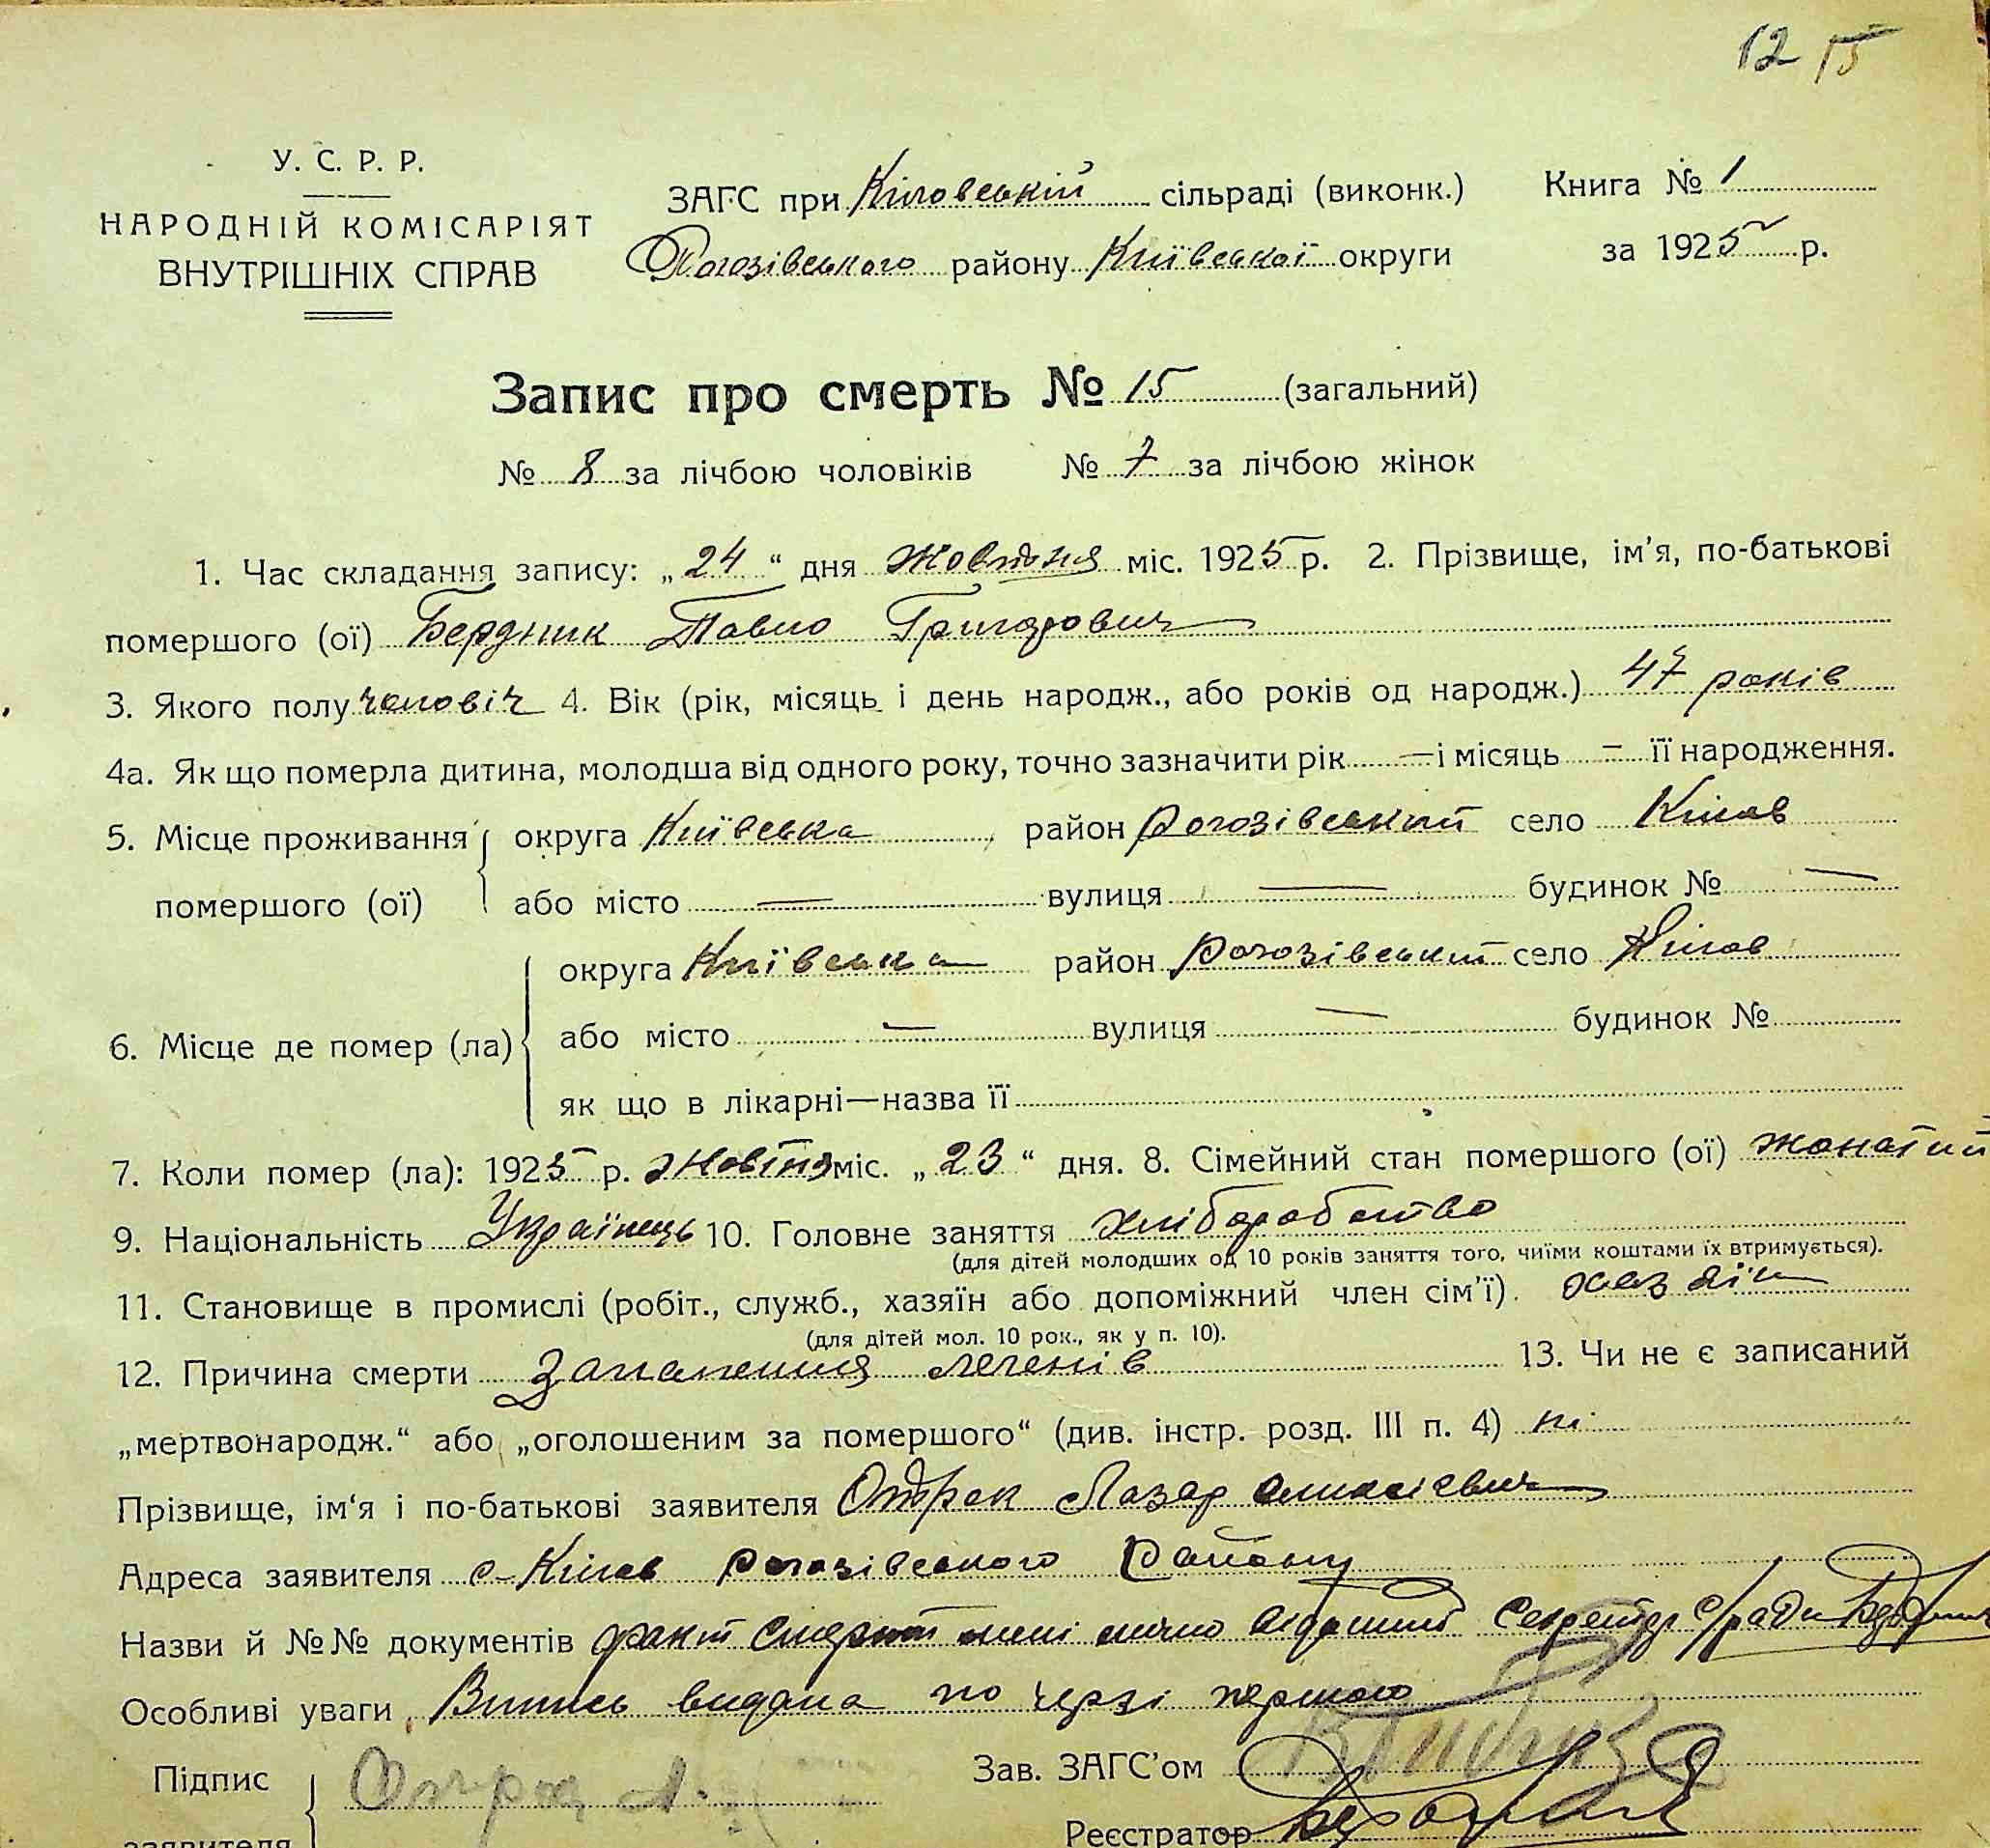 12 15
У. С. Р. Р.
НАРОДНІЙ КОМІСАРІЯТ
ВНУТРІШНІХ СПРАВ
ЗАГС при Кіловській сільраді (виконк.)
Рогозівського району Київської округи
Книга № 1
за 1925 р.
Запис про смерть № 15 (загальний)
№ 8 за лічбою чоловіків № 7 за лічбою жінок
1. Час складання запису: „24“ дня Жовтня міс. 1925 р. 2. Прізвище, ім’я, по-батькові
помершого (ої) Бердник Павло Григорович
3. Якого полу чоловіч 4. Вік (рік, місяць і день народж., або років од народж.) 47 років
4а. Як що померла дитина, молодша від одного року, точно зазначити рік — і місяць — її народження.
5. Місце проживання округа Київська район Рогозівський село Кілов
помершого (ої) або місто — вулиця — будинок № —
округа Київська район Рогозівський село Кілов
6. Місце де помер (ла) або місто — вулиця — будинок №
як що в лікарні—назва її
7. Коли помер (ла): 1925 р. Жовтня міс. „23“ дня. 8. Сімейний стан помершого (ої) жонатий
9. Національність Українець 10. Головне заняття хліборобство
(для дітей молодших од 10 років заняття того, чиїми коштами їх втримується).
11. Становище в промислі (робіт., служб., хазяїн або допоміжний член сім’ї). хазяїн
(для дітей мол. 10 рок., як у п. 10).
12. Причина смерти Запалення легенів 13. Чи не є записаний
„мертвонародж.“ або „оголошеним за помершого“ (див. інстр. розд. III п. 4) ні
Прізвище, ім‘я і по-батькові заявителя Лазар
Адреса заявителя с. Кілов Рогозівського Району
Назви й №№ документів факт смерті мені Секретар с/ради Бердник
Особливі уваги Випись видана по черзі першою
Підпис
заявителя
Зав. ЗАГС’ом
Реєстратор Бердник